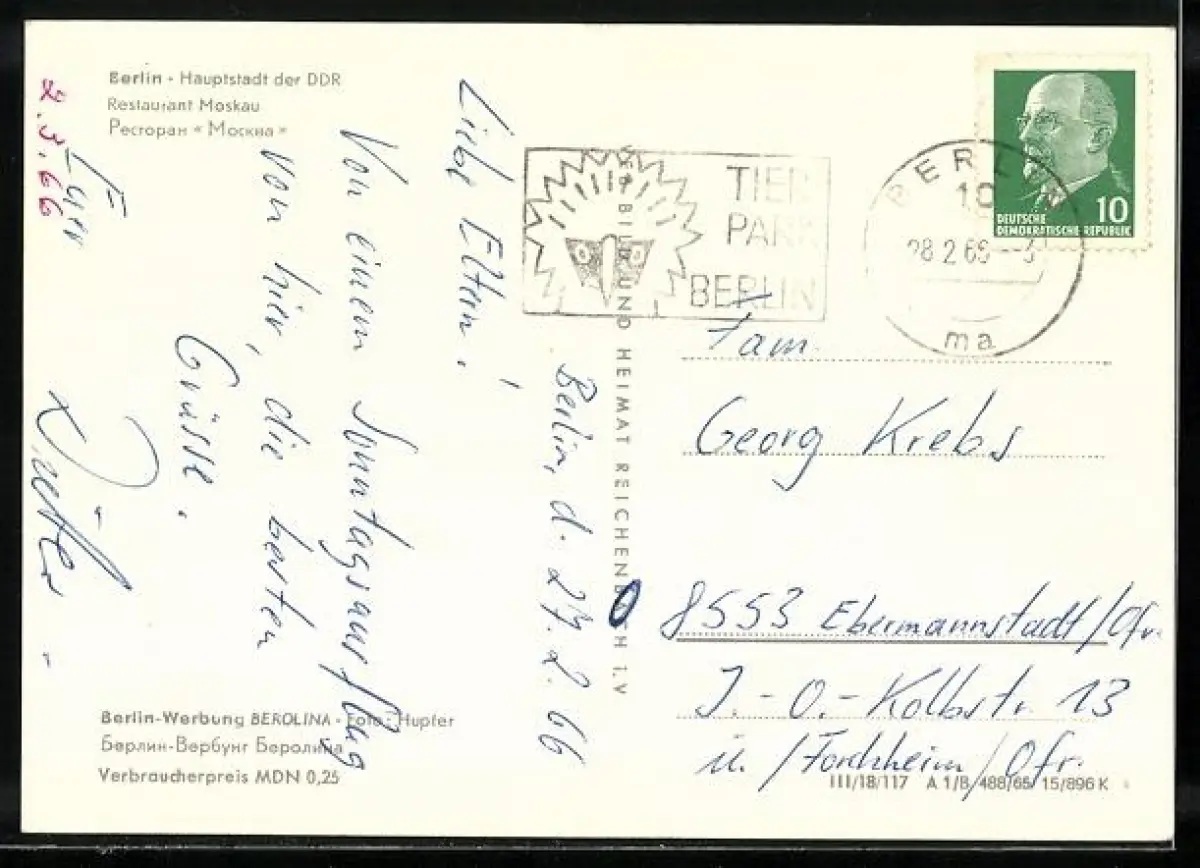 Berlin - Hauptstadt der DDR
Restaurant Moskau
Ресторан «Москва»
2.3.66
Berlin, d. 27.2.66
Liebe Eltern!
Von einem Sonntagsausflug
von hier, die besten
Grüsse.
Euer
Dieter
Berlin-Werbung BEROLINA - Foto: Hupfer
Берлин-Вербунг Беролина
Verbraucherpreis MDN 0,25
VEB BILD UND HEIMAT REICHENBACH I.V
TIER
PARK
BERLIN
BERLIN
10
28.2.66
ma
10
DEUTSCHE
DEMOKRATISCHE REPUBLIK
Fam.
Georg Krebs
8553 Ebermannstadt/Ofr.
J.-O.-Kolbstr. 13
ü./Forchheim/Ofr.
III/18/117 A 1/B 488/65 15/896 K